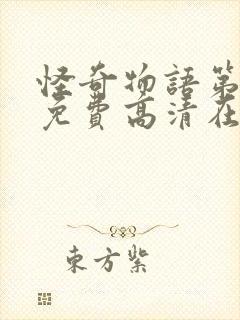 怪奇物語第
免費高清在
東方紫